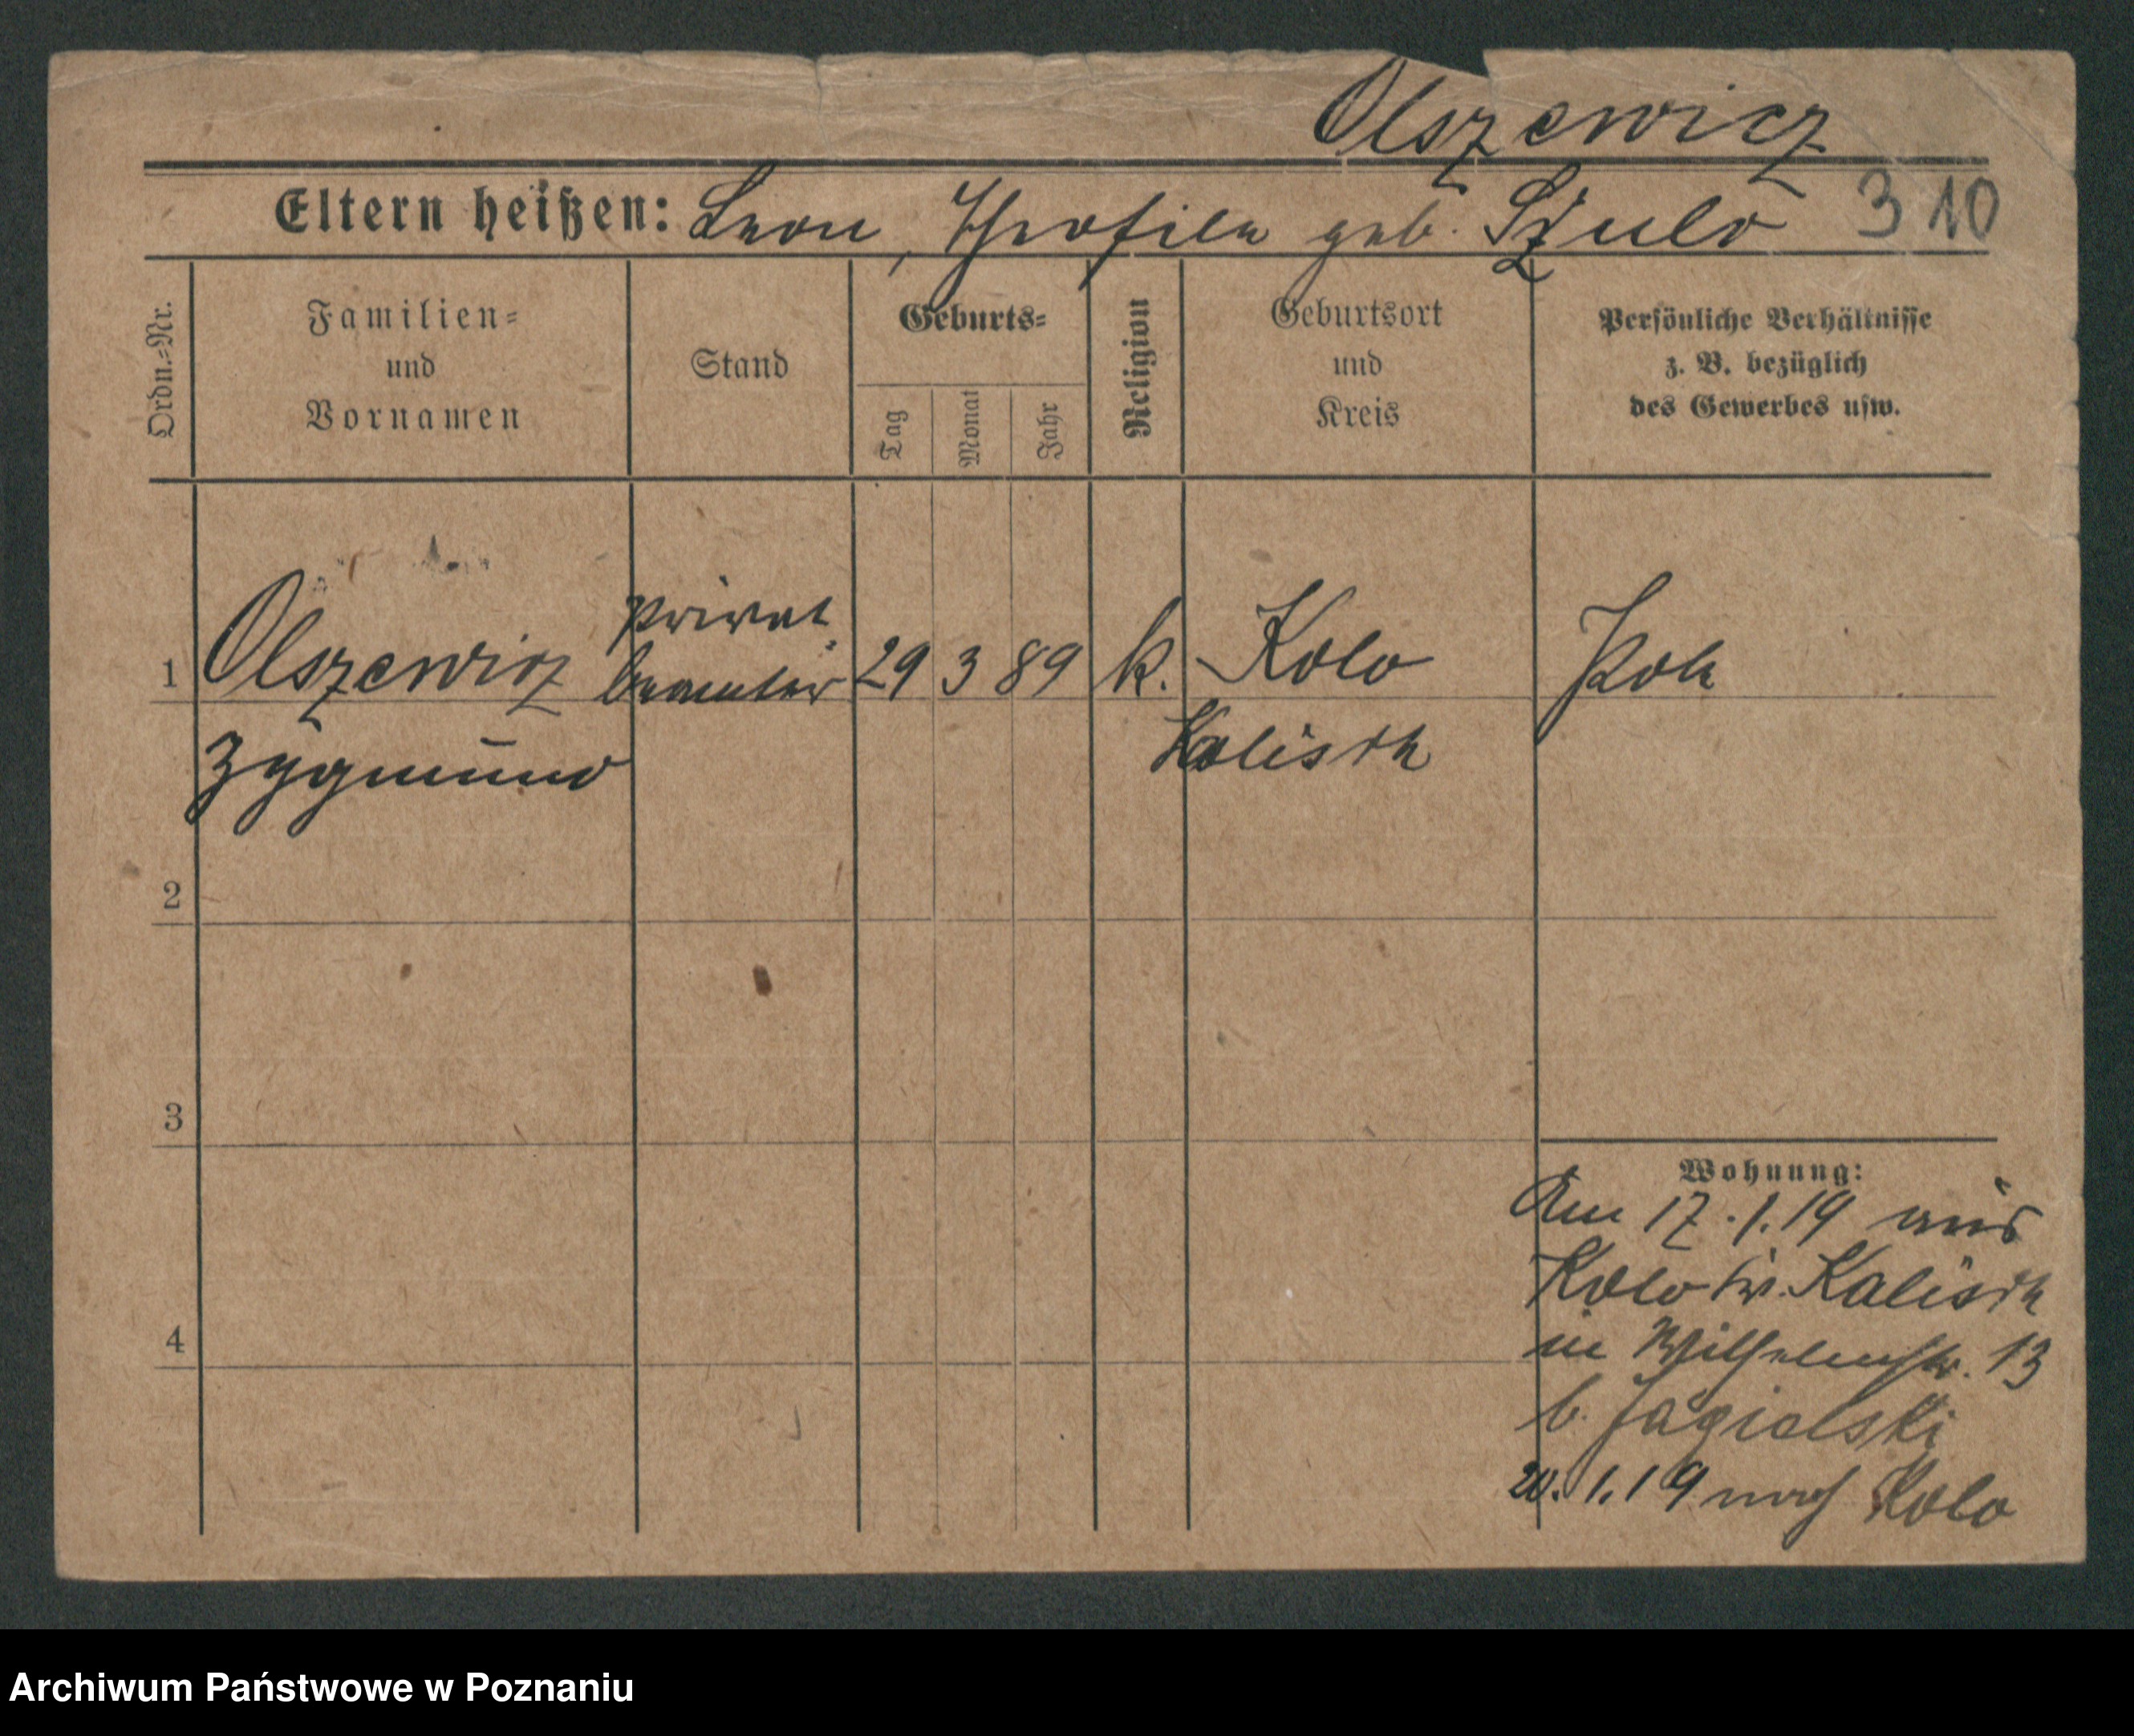 Olszewicz
Eltern heißen: Leon, Theofila geb. Szulc 310
Ordn.=Nr.
Familien=
und
Vornamen
Stand
Geburts=
Tag
Monat
Jahr
Religion
Geburtsort
und
Kreis
Persönliche Verhältnisse
z. B. bezüglich
des Gewerbes usw.
1 Olszewicz Privat 29 3 89 k. Kolo Pole
beamter
Zygmund Kalisch
2
3
4
Wohnung:
Am 17.1.19 aus
Kolo Kalisch
in Wilhelmstr. 13
b. Jagielski
20.1.19 nach Kolo
Archiwum Państwowe w Poznaniu